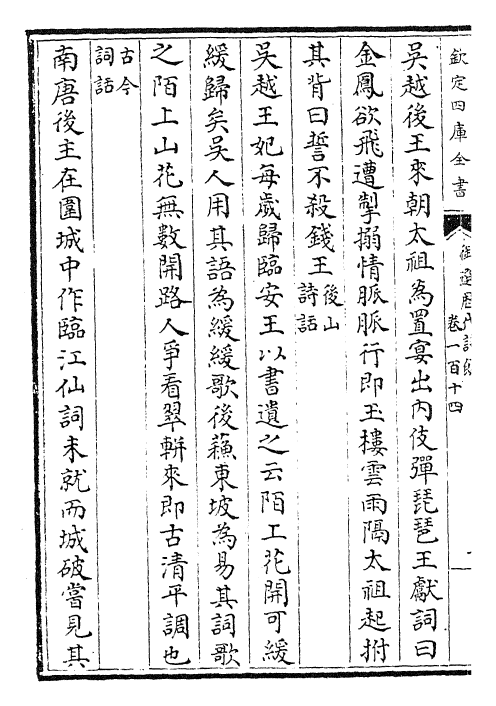 欽定四庫全書
御選歷代詩餘
卷一百十四
吳越後王來朝太祖為置宴出內伎彈琵琶王獻詞曰
金鳳欲飛遭掣搦情脈脈行即玉樓雲雨隔太祖起拊
其背曰誓不殺錢王後山
詩話
吳越王妃每歲歸臨安王以書遺之云陌上花開可緩
緩歸矣吳人用其語為緩緩歌後蘇東坡為易其詞歌
之陌上山花無數開路人爭看翠軿來即古清平調也
古今
詞話
南唐後主在圍城中作臨江仙詞未就而城破嘗見其